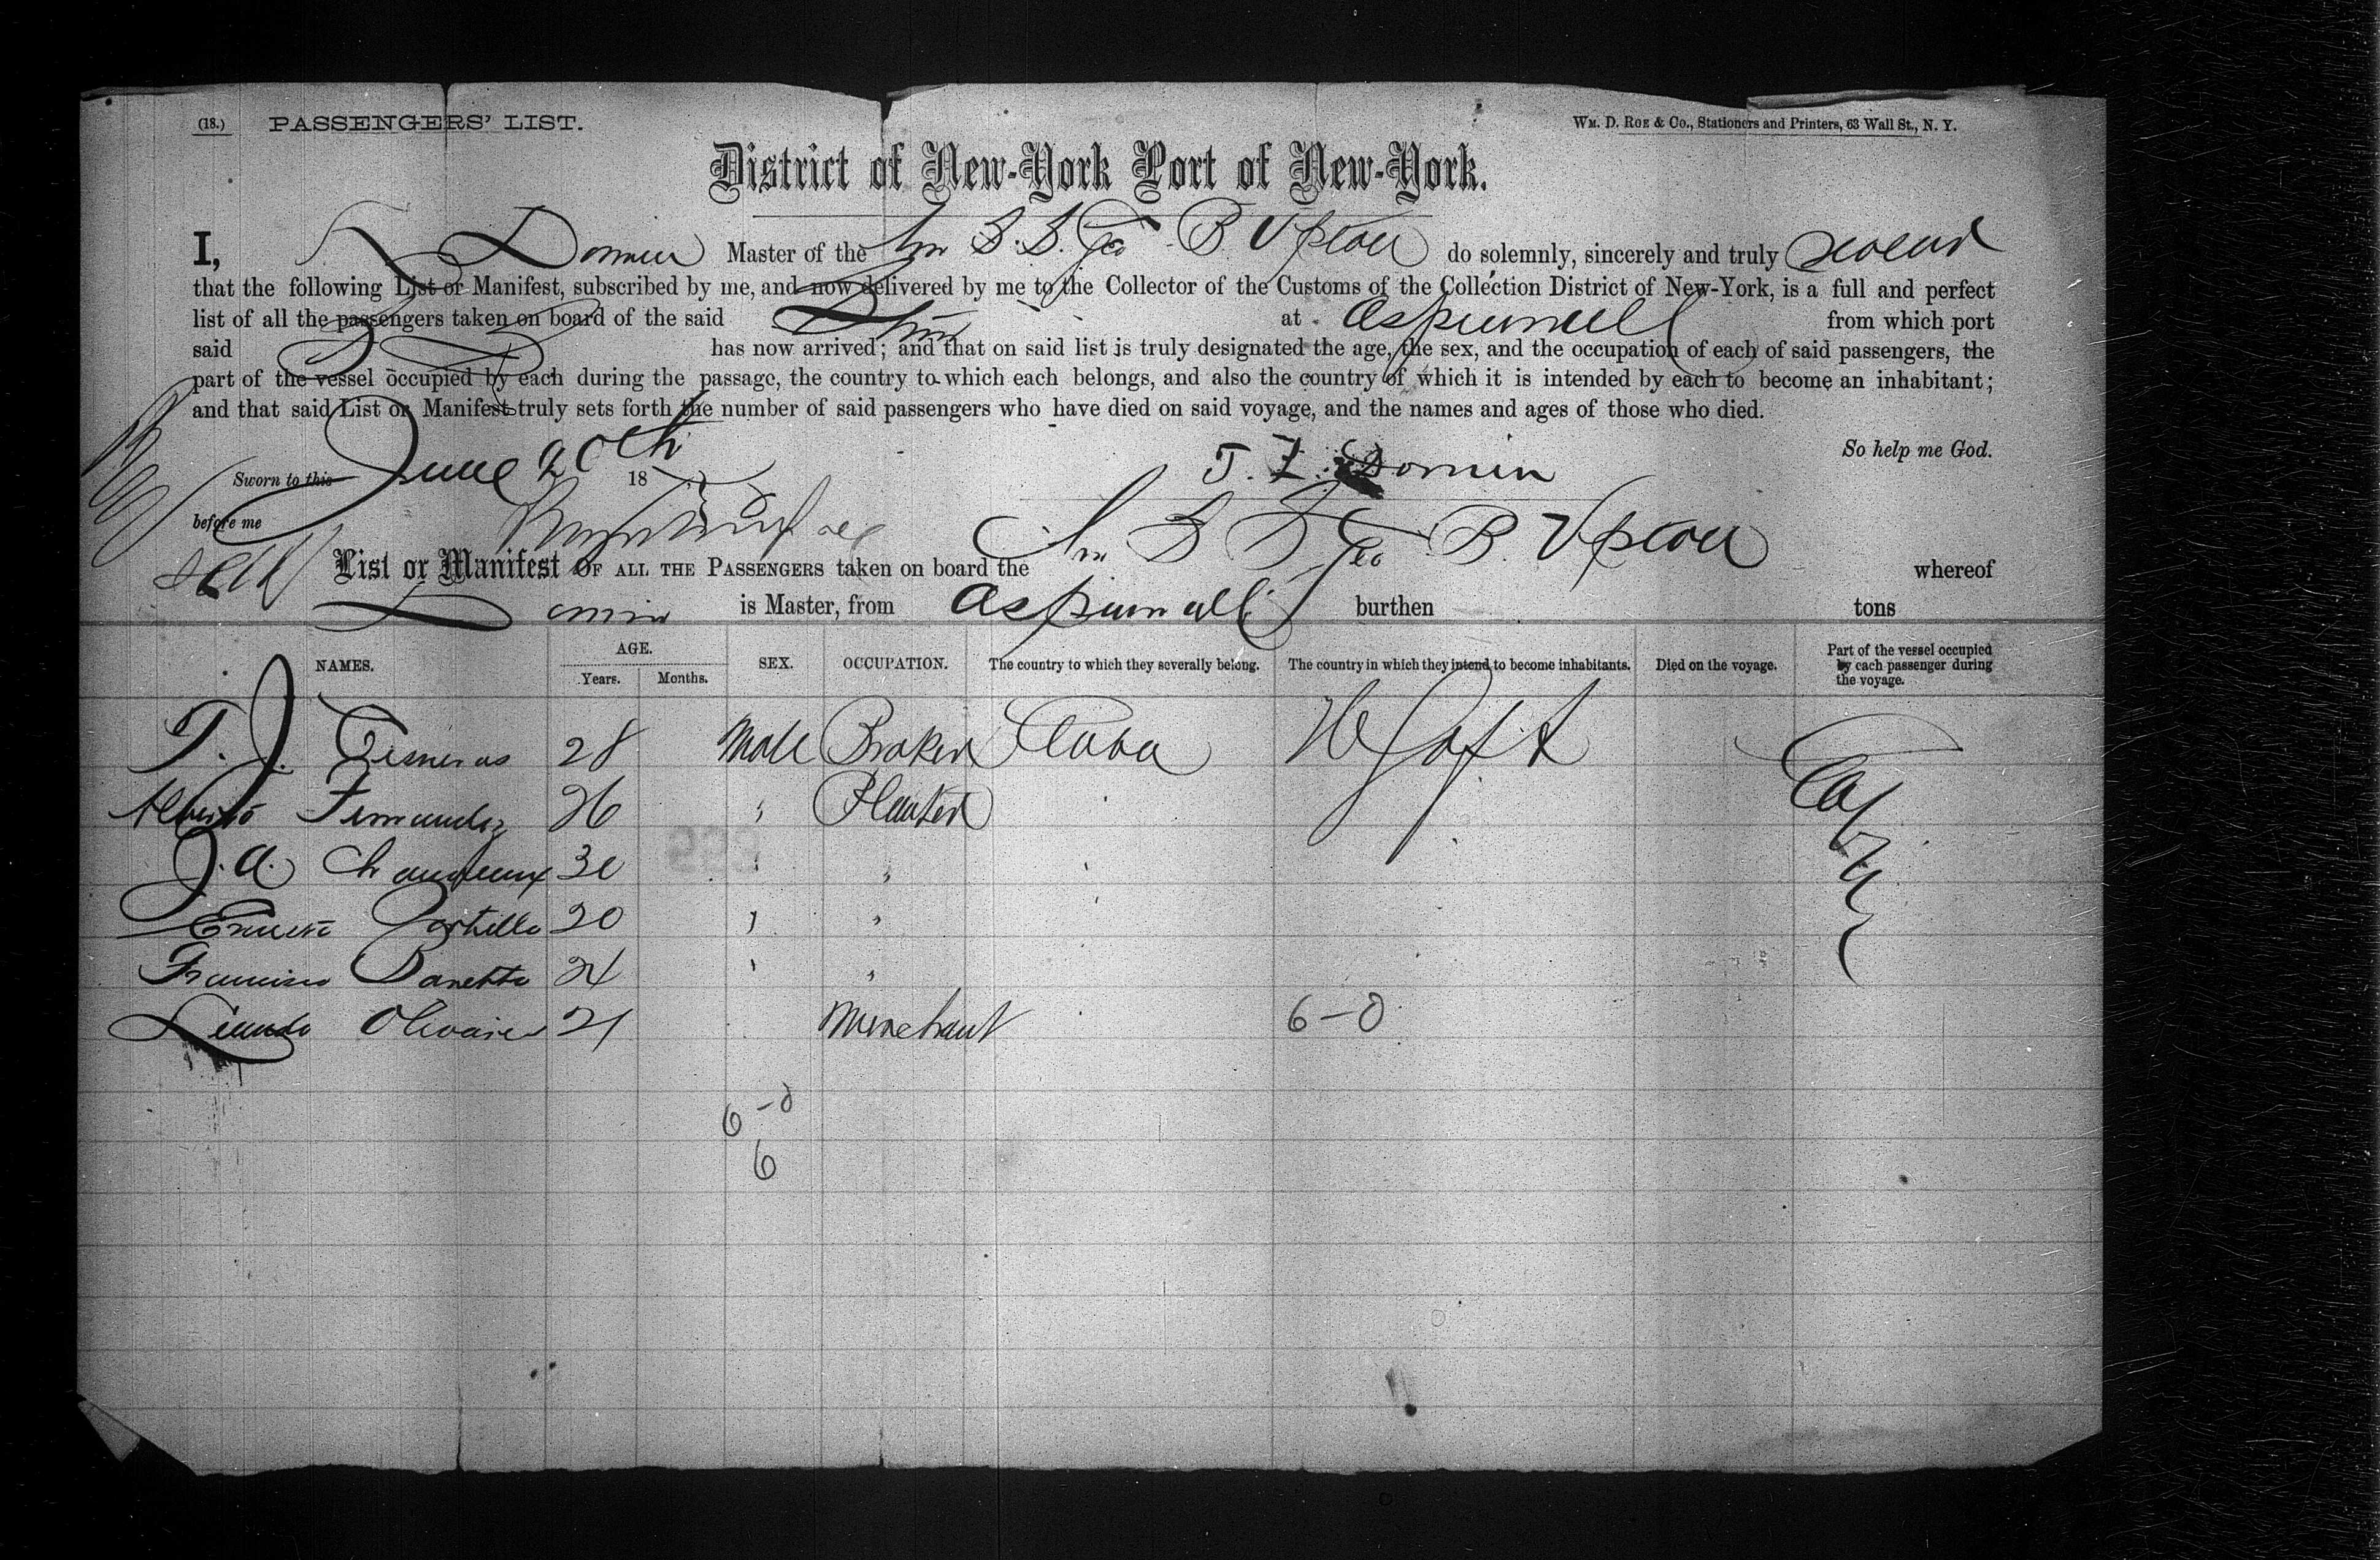 (18.) PASSENGERS' LIST. WM. D. ROE & CO., Stationers and Printers, 63 Wall St., N. Y.
District of New-York Port of New-York.
I, Master of the Am S. S. Geo B. Upton do solemnly, sincerely and truly swear
that the following List or Manifest, subscribed by me, and now delivered by me to the Collector of the Customs of the Collection District of New-York, is a full and perfect
list of all the passengers taken on board of the said at Aspinwall from which port
said has now arrived; and that on said list is truly designated the age, the sex, and the occupation of each of said passengers, the
part of the vessel occupied by each during the passage, the country to which each belongs, and also the country of which it is intended by each to become an inhabitant;
and that said List or Manifest truly sets forth the number of said passengers who have died on said voyage, and the names and ages of those who died.
So help me God.
Sworn to this June 20th 18
before me
List or Manifest OF ALL THE PASSENGERS taken on board the Am S S Geo B. Upton whereof
is Master, from Aspinwall burthen tons
NAMES. AGE. Years. Months. SEX. OCCUPATION. The country to which they severally belong. The country in which they intend to become inhabitants. Died on the voyage. Part of the vessel occupied by each passenger during the voyage.
T. J. Cisneros 28 Male Broker Cuba
Alberto Fernandez 26 " Planter
J. A. 30 " "
Ernesto Portillo 20 " "
Francisco 24 " "
21 Merchant 6-0
6-0
6